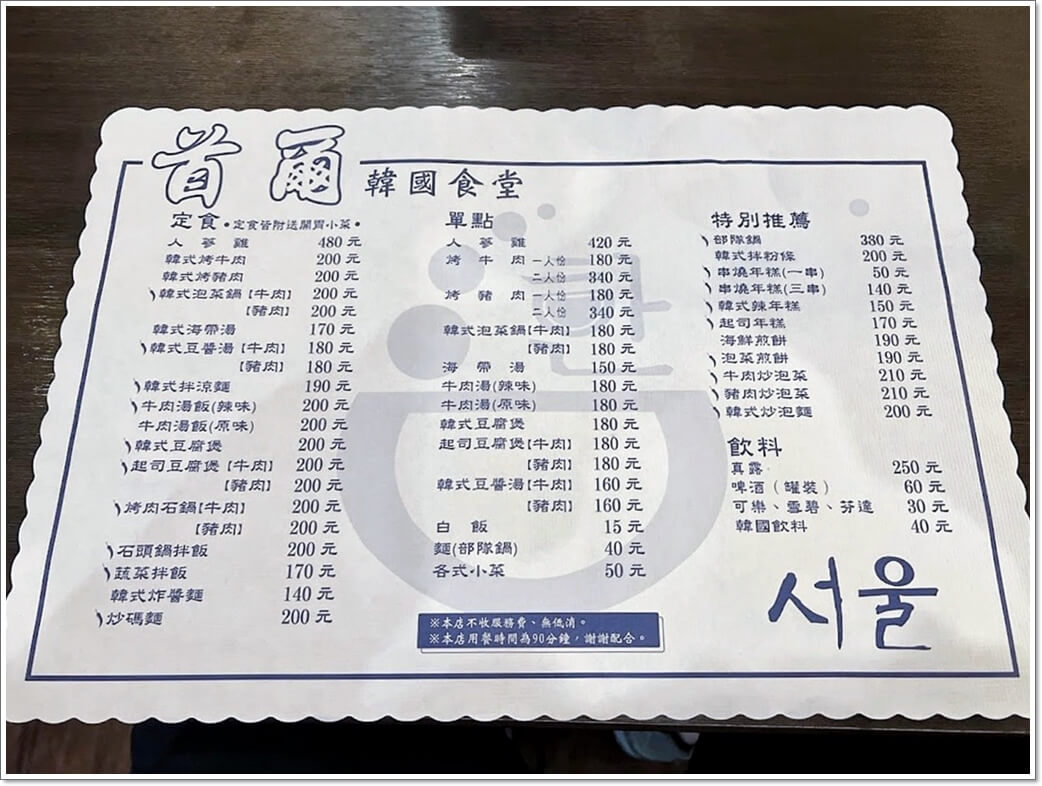 首爾 韓國食堂
定食•定食皆附送開胃小菜•
人蔘雞 480元
韓式烤牛肉 200元
韓式烤豬肉 200元
韓式泡菜鍋【牛肉】 200元
【豬肉】 200元
韓式海帶湯 170元
韓式豆醬湯【牛肉】 180元
【豬肉】 180元
韓式拌涼麵 190元
牛肉湯飯(辣味) 200元
牛肉湯飯(原味) 200元
韓式豆腐煲 200元
起司豆腐煲【牛肉】 200元
【豬肉】 200元
烤肉石鍋【牛肉】 200元
【豬肉】 200元
石頭鍋拌飯 200元
蔬菜拌飯 170元
韓式炸醬麵 140元
炒碼麵 200元
單點
人蔘雞 420元
烤牛肉 一人份 180元
二人份 340元
烤豬肉 一人份 180元
二人份 340元
韓式泡菜鍋【牛肉】 180元
【豬肉】 180元
海帶湯 150元
牛肉湯(辣味) 180元
牛肉湯(原味) 180元
韓式豆腐煲 180元
起司豆腐煲【牛肉】 180元
【豬肉】 180元
韓式豆醬湯【牛肉】 160元
【豬肉】 160元
白飯 15元
麵(部隊鍋) 40元
各式小菜 50元
※本店不收服務費、無低消。
※本店用餐時間為90分鐘，謝謝配合。
特別推薦
部隊鍋 380元
韓式拌粉條 200元
串燒年糕(一串) 50元
串燒年糕(三串) 140元
韓式辣年糕 150元
起司年糕 170元
海鮮煎餅 190元
泡菜煎餅 190元
牛肉炒泡菜 210元
豬肉炒泡菜 210元
韓式炒泡麵 200元
飲料
真露 250元
啤酒（罐裝） 60元
可樂、雪碧、芬達 30元
韓國飲料 40元
서울